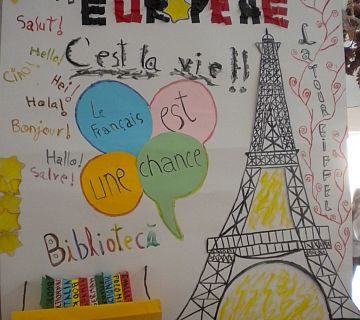 EUROPENE
Salut!
C'est la vie!!
Hello!
Ciao!
Hei!
Hola!
Bonjour!
Hallo!
Salve!
Le
français
est
une
chance
LA TOUR EIFFEL
Bibliotecă